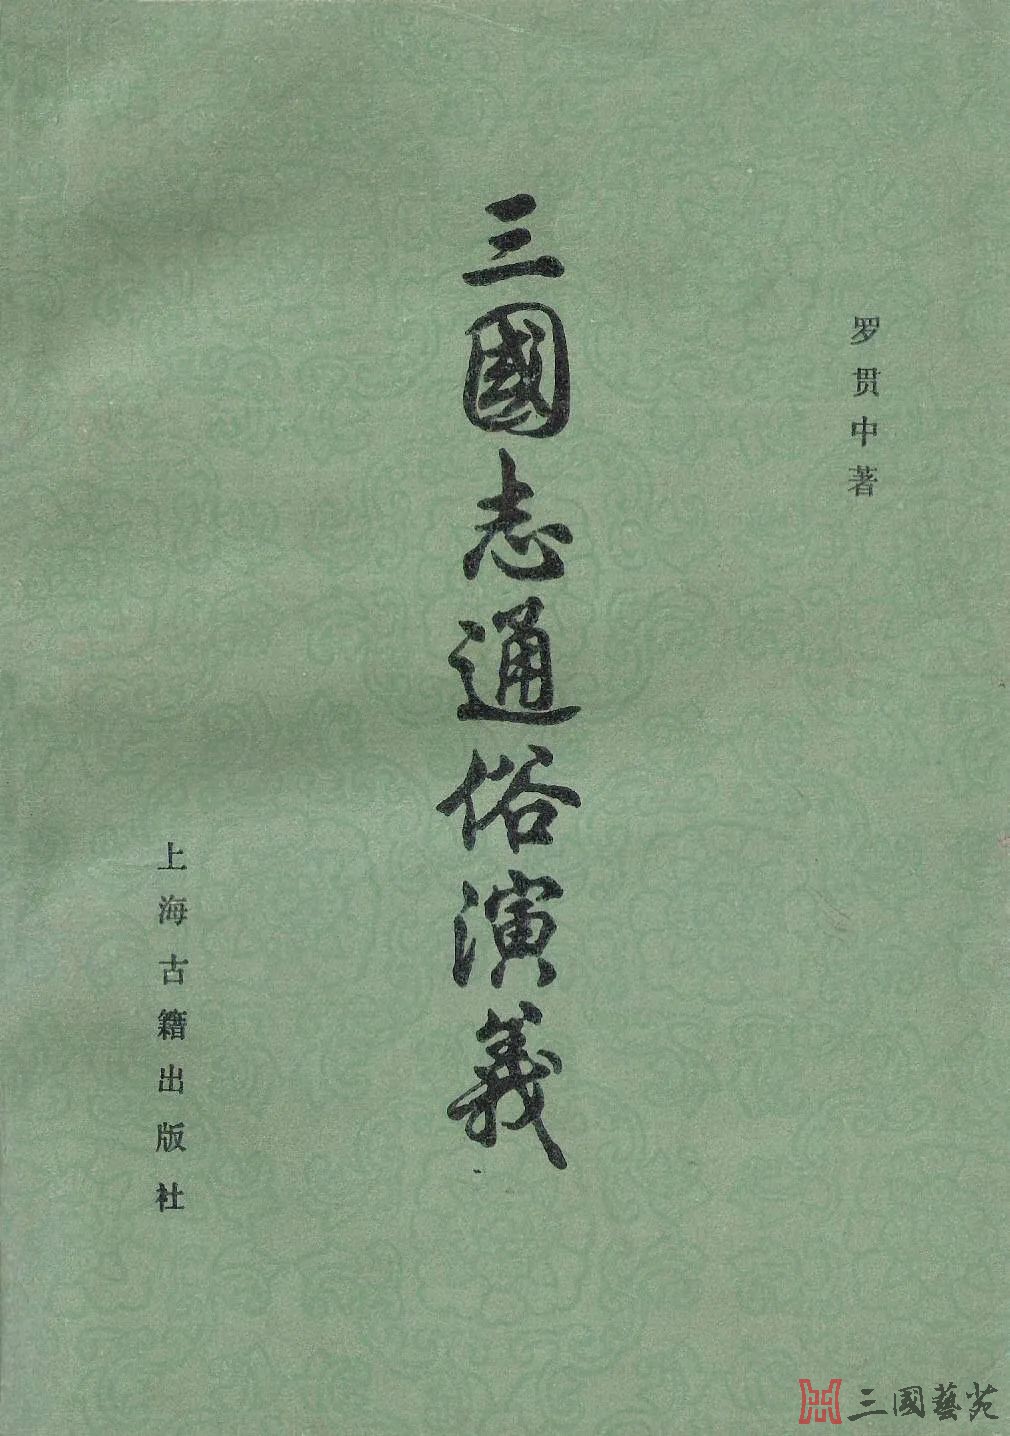 罗贯中著
三國志通俗演義
上海古籍出版社
三國藝苑